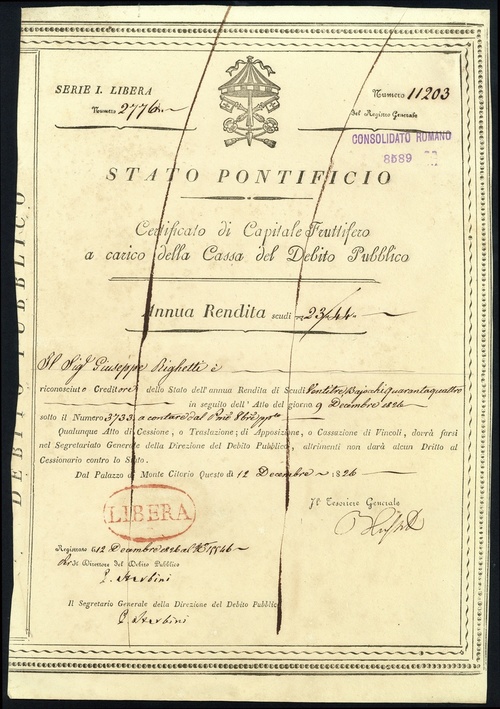 SERIE I. LIBERA
Numero 2776
Numero 11203
del Registro Generale
CONSOLIDATO ROMANO
8589
STATO PONTIFICIO
Certificato di Capitale Fruttifero
a carico della Cassa del Debito Pubblico
Annua Rendita scudi 23:44
Il Sigr Giuseppe Righetti è
riconosciuto Creditore dello Stato dell'annua Rendita di Scudi Ventitre, Bajocchi quarantaquattro
in seguito dell'Atto del giorno 9 Decembre 1826
sotto il Numero 3733 a contare dal
Qualunque Atto di Cessione, o Traslazione; di Apposizione, o Cassazione di Vincoli, dovrà farsi
nel Segretariato Generale della Direzione del Debito Pubblico, altrimenti non darà alcun Dritto al
Cessionario contro lo Stato.
Dal Palazzo di Monte Citorio Questo dì 12 Decembre 1826
LIBERA
Il Tesoriere Generale
Registrato li 12 Decembre 1826 al
Per Il Direttore del Debito Pubblico
Sterbini
Il Segretario Generale della Direzione del Debito Pubblico
Sterbini
DEBITO PUBBLICO